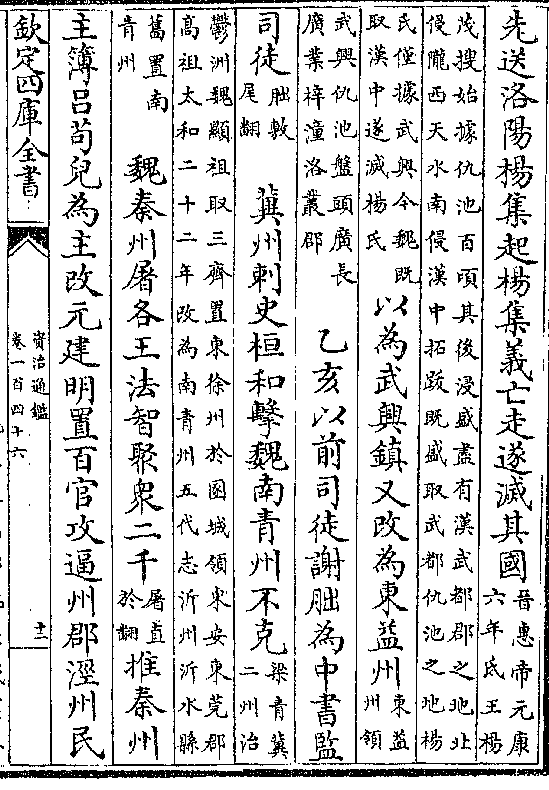 先送洛陽楊集起楊集義亡走遂滅其國
晉惠帝元康
六年氐王楊
茂搜始據仇池百頃其後浸盛盡有漢武都郡之地北
侵隴西天水南侵漢中拓跋既盛取武都仇池之地楊
氏僅據武興今魏既
取漢中遂滅楊氏
以為武興鎮又改為東益州
東益
州領
武興仇池盤頭廣長
廣業梓潼洛叢郡
乙亥以前司徒謝朏為中書監
司徒
朏敷
尾翻
冀州刺史桓和擊魏南青州不克
梁青冀
二州治
鬱洲魏顯祖取三齊置東徐州於團城領東安東莞郡
高祖太和二十二年改為南青州五代志沂州沂水縣
舊置南
青州
魏秦州屠各王法智聚衆二千
屠直
於翻
推秦州
主簿呂苟兒為主改元建明置百官攻逼州郡涇州民
欽定四庫全書
資治通鑑
卷一百四十六
十一